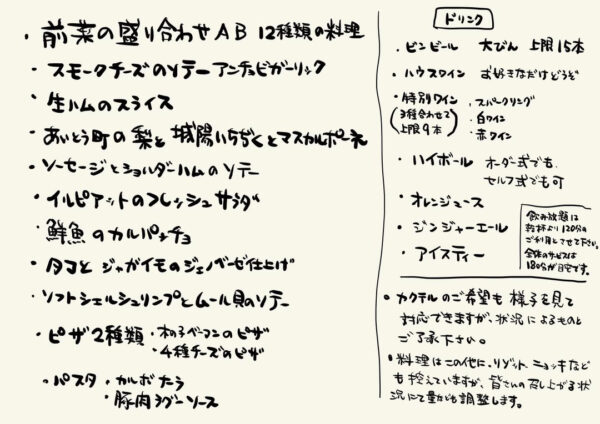 ・前菜の盛り合わせAB 12種類の料理
・スモークチーズのソテーアンチョビガーリック
・生ハムのスライス
・あいとう町の梨と城陽いちぢくとマスカルポーネ
・ソーセージとショルダーハムのソテー
・イルピアットのフレッシュサラダ
・鮮魚のカルパッチョ
・タコとジャガイモのジェノベーゼ仕上げ
・ソフトシェルシュリンプとムール貝のソテー
・ピザ2種類 ・木の子ベーコンのピザ
・4種チーズのピザ
・パスタ ・カルボナーラ
・豚肉ラグーソース
ドリンク
・ビンビール 大びん 上限15本
・ハウスワイン お好きなだけどうぞ
・特別ワイン ・スパークリング
(3種合わせて ・白ワイン
上限9本) ・赤ワイン
・ハイボール オーダー式でも、
セルフ式でも可
・オレンジュース
・ジンジャーエール
・アイスティー
飲み放題は
乾杯より120分の
ご利用とさせて下さい。
全体のサービスは
180分が目安です。
・カクテルのご希望も様子を見て
対応できますが、状況によるものと
ご了承下さい。
・料理はこの他に、リゾット、ニョッキなど
も控えていますが、皆さんの召し上がる状
況にて量がも調整します。